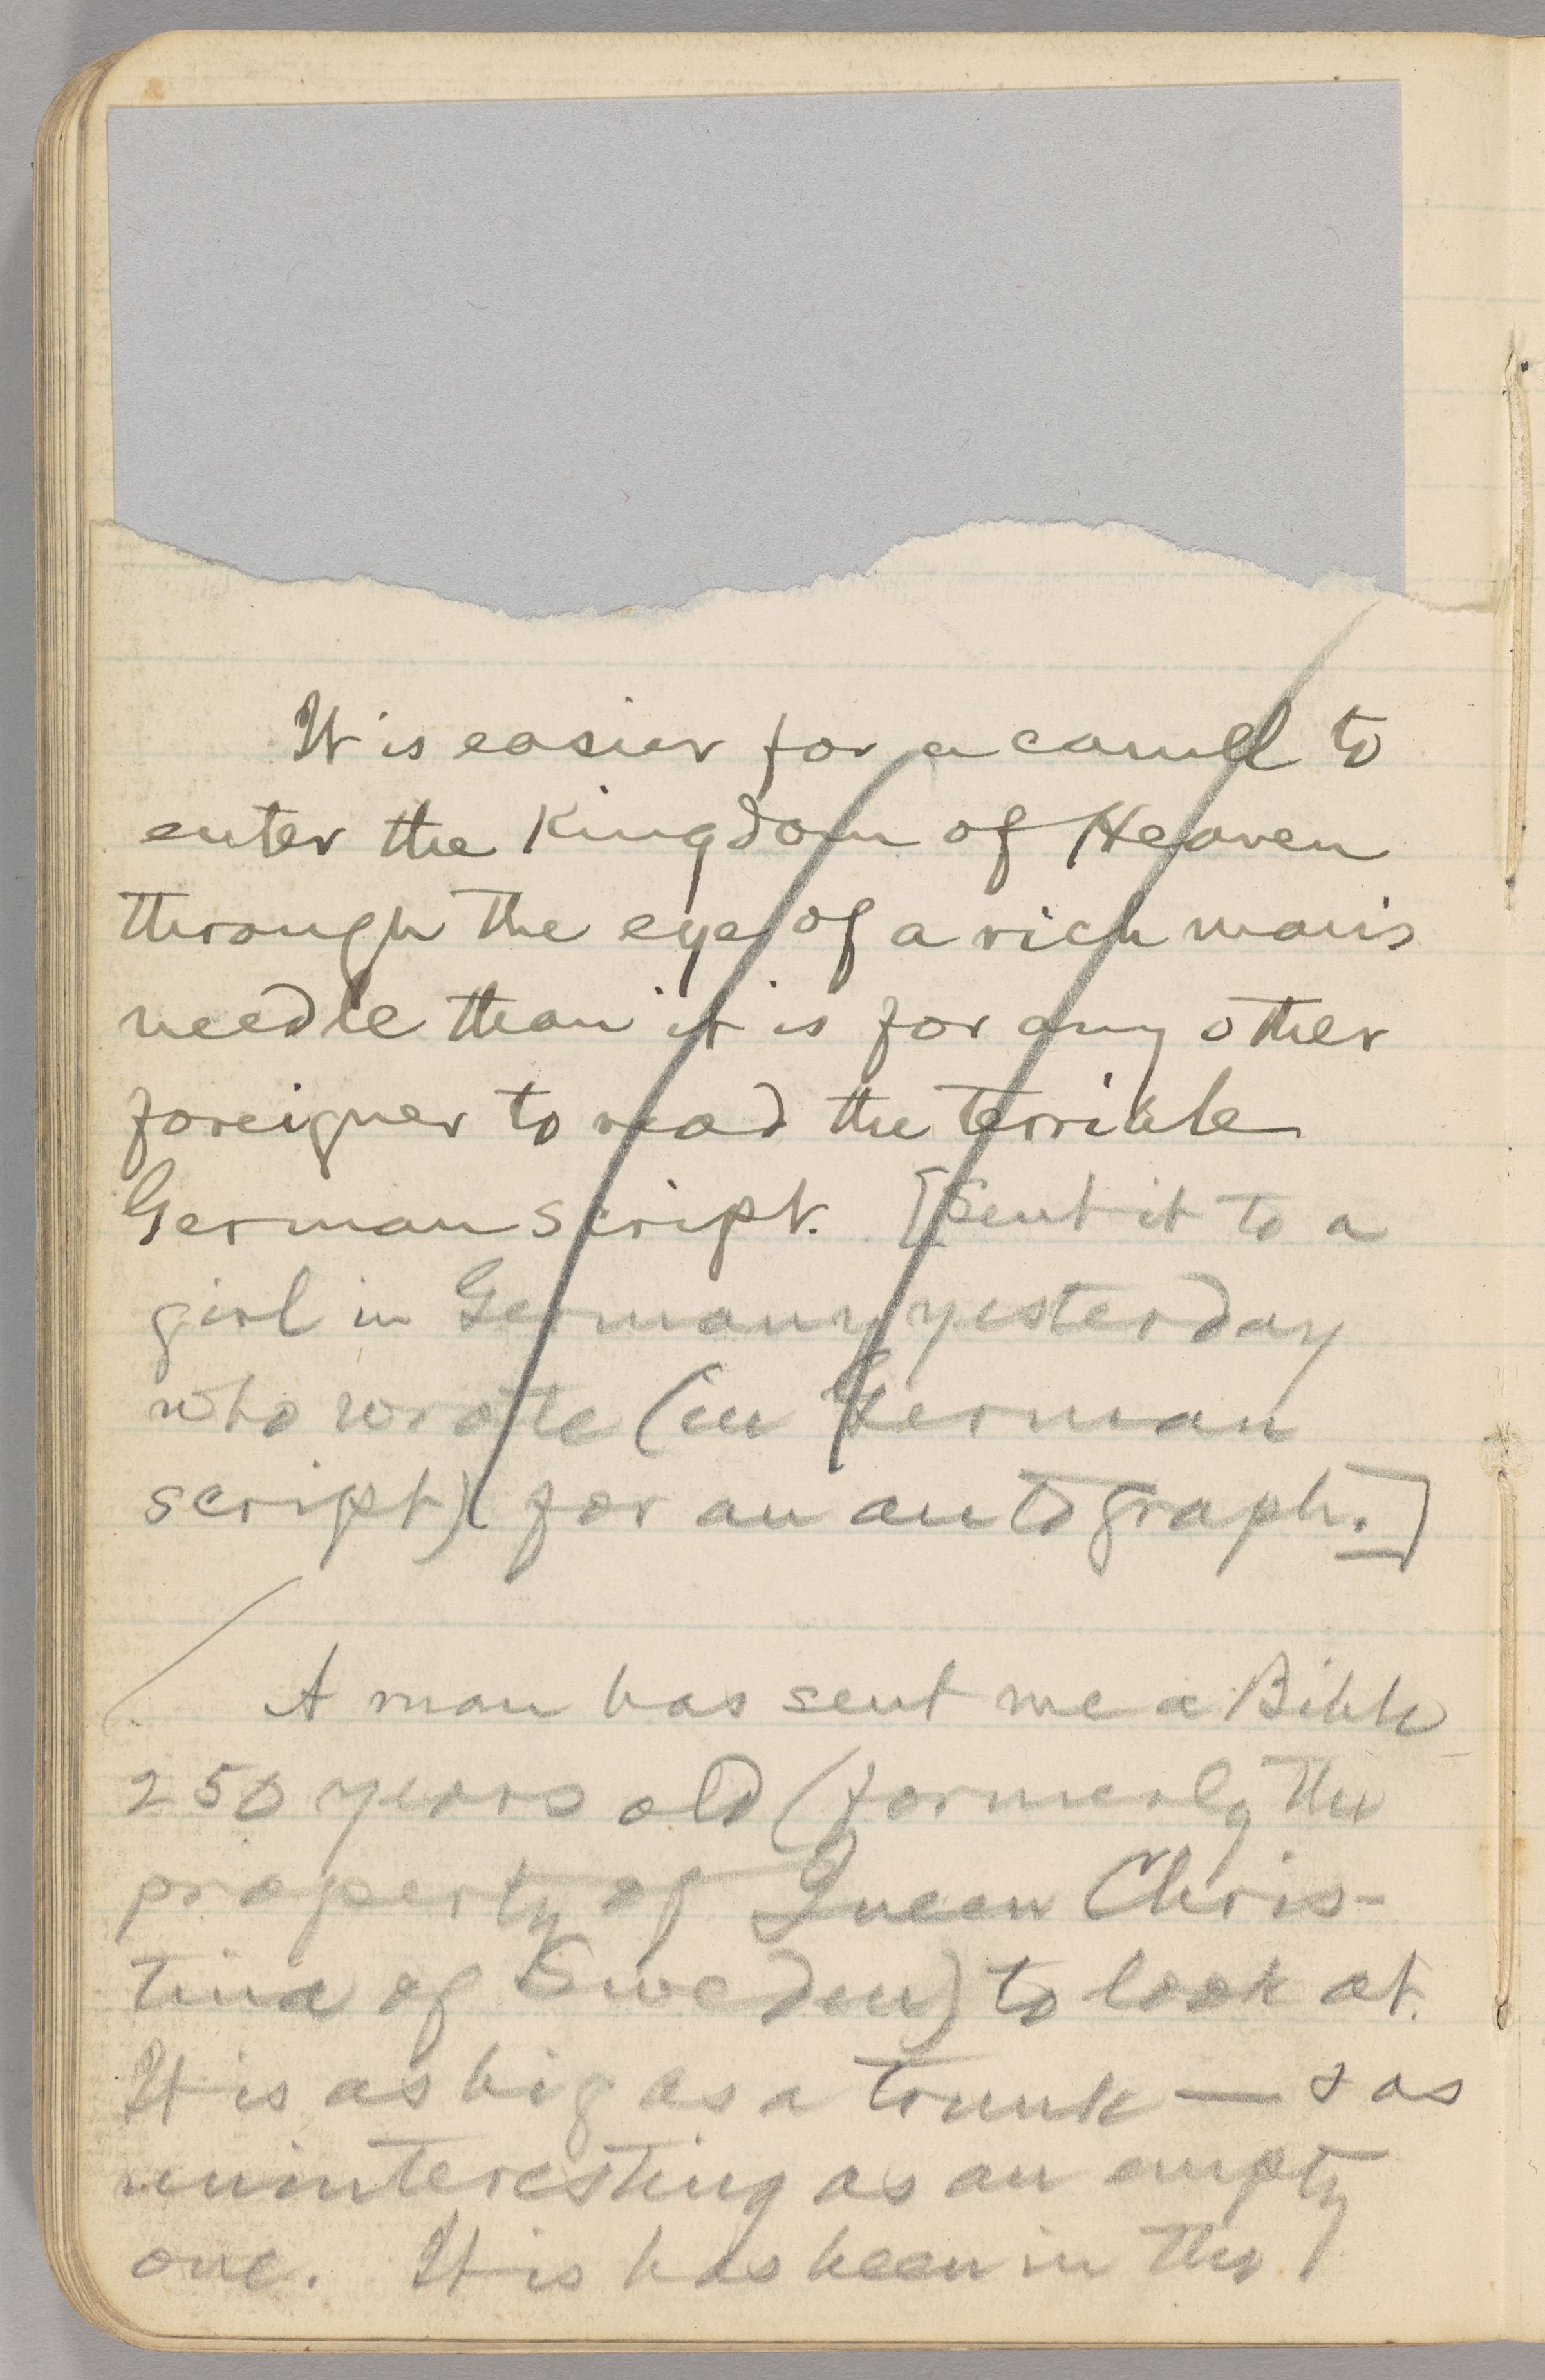 It is easier for a camel to
enter the Kingdom of Heaven
through the eye of a rich man's
needle than it is for any other
foreigner to read the terrible
German script. [Sent it to a
girl in Germany yesterday
who wrote (in German
script) for an autograph.]
A man has sent me a Bible
250 years old (formerly the
property of Queen Chris-
tina of Sweden) to look at.
It is as big as a trunk — & as
uninteresting as an empty
one. It is has been in the